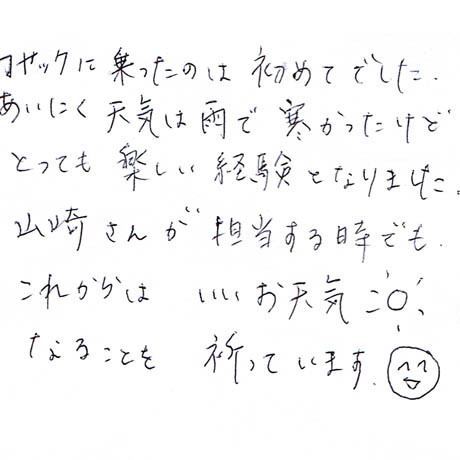 カヤックに 乗ったのは 初めてでした.
あいにく 天気は雨で 寒かったけど
とっても 楽しい 経験となりました.
山崎さんが 担当する時でも.
これからは いいお天気に
なることを 祈っています.